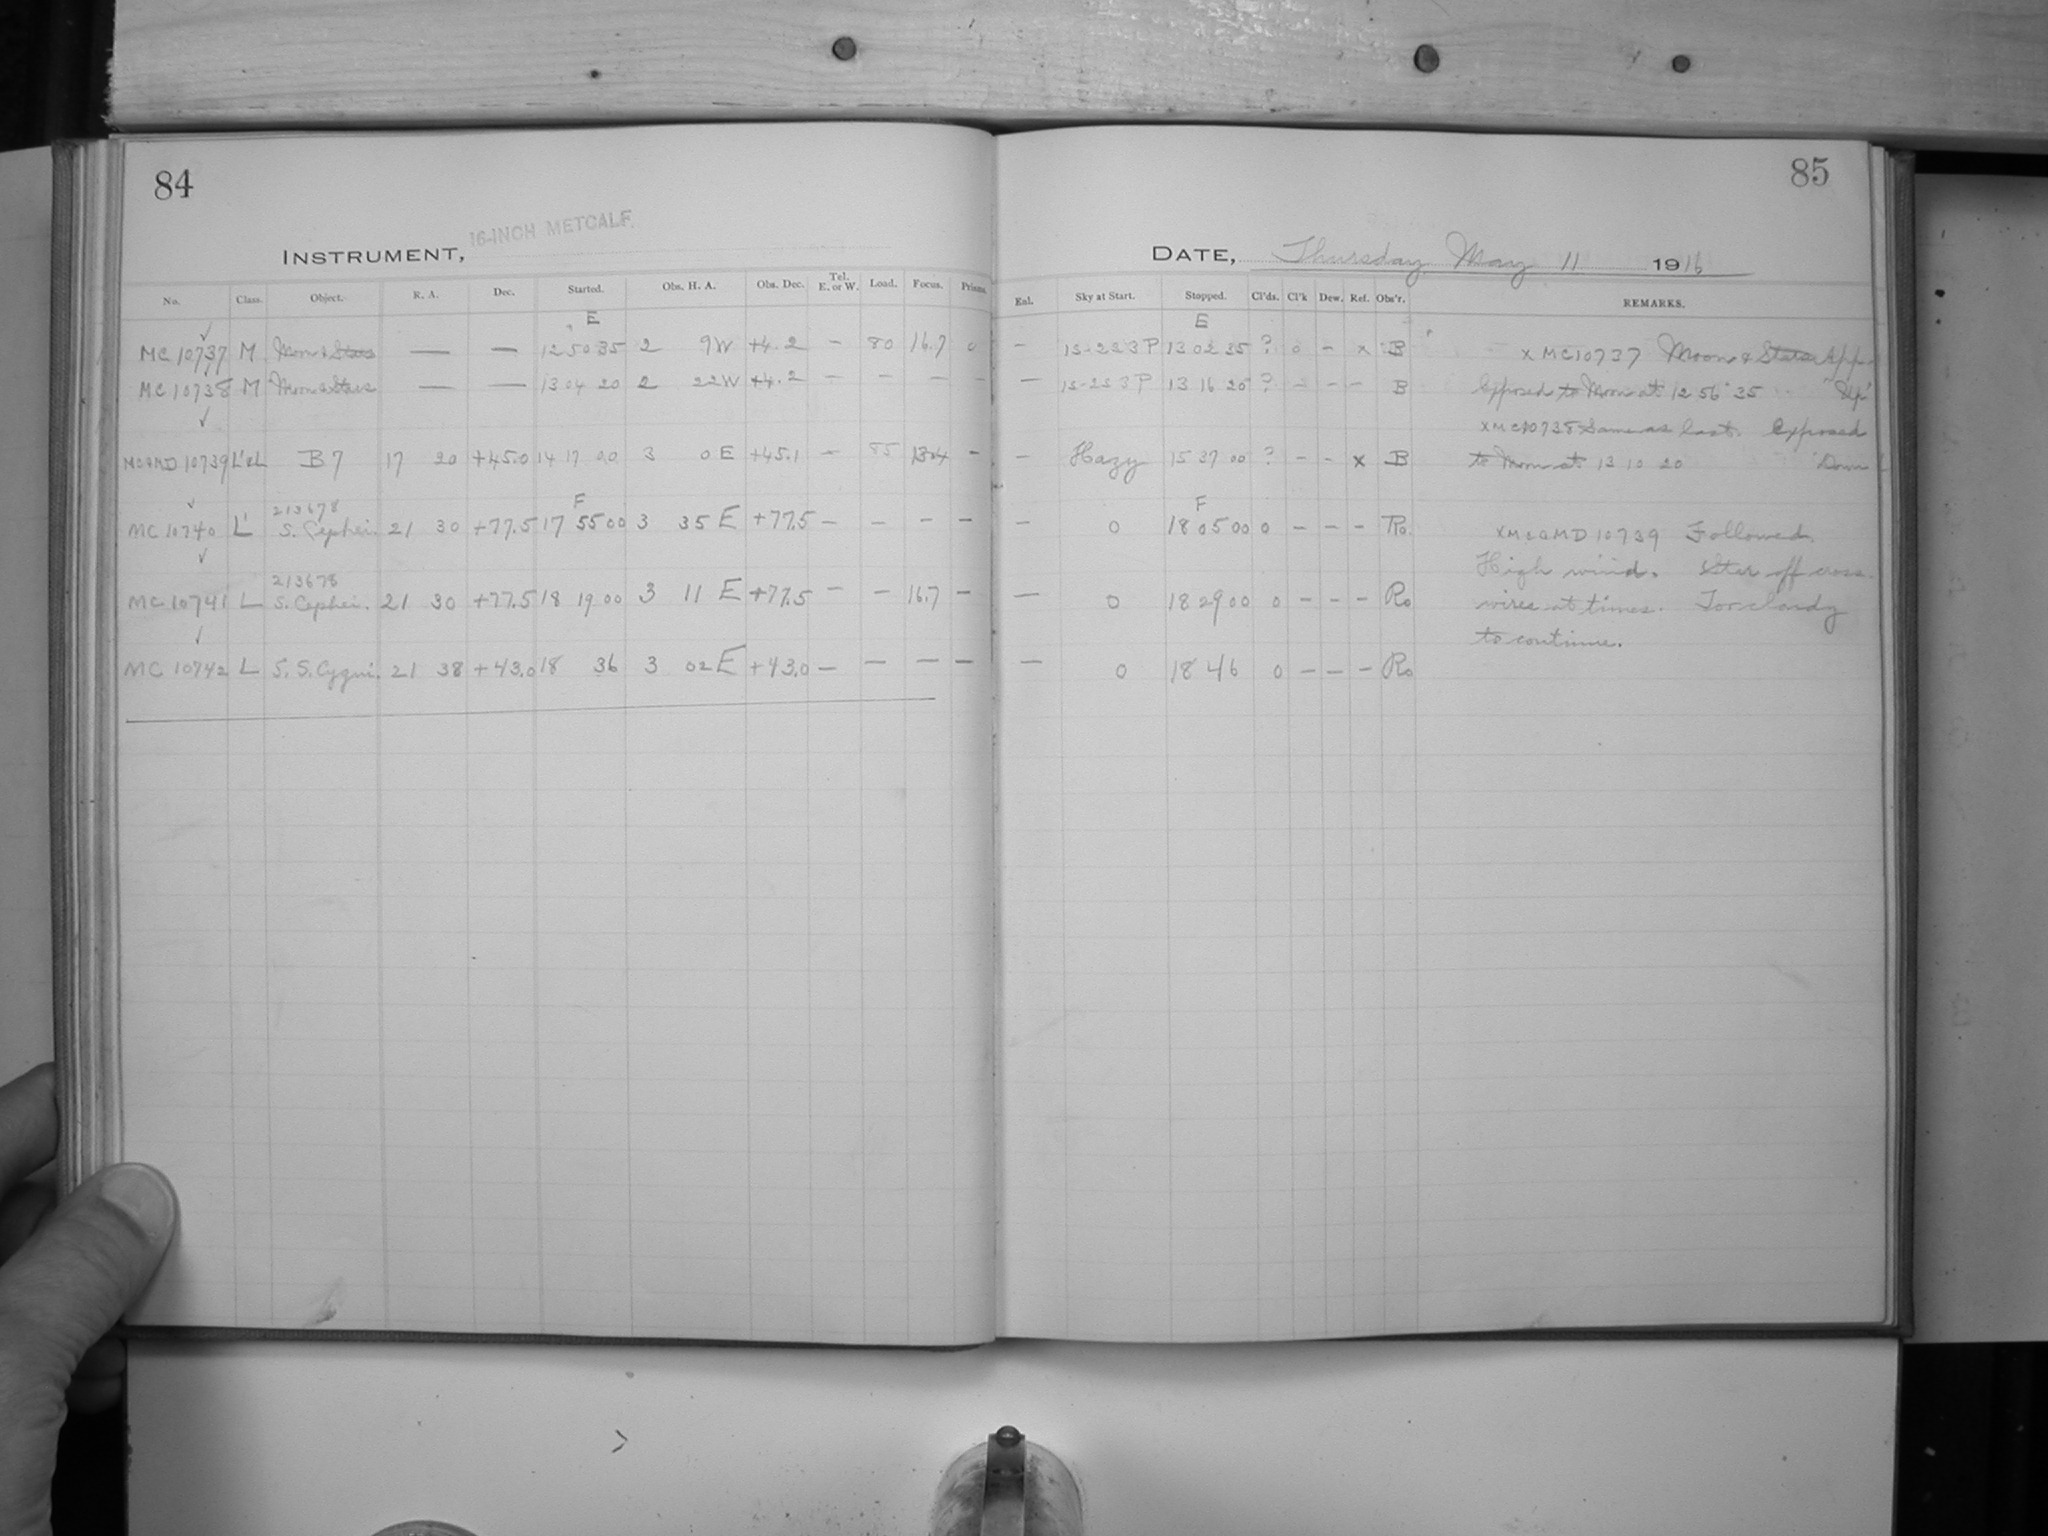 84
85
16-INCH METCALF.
INSTRUMENT,
DATE, Thursday May 11 1916
No. Class. Object. R. A. Dec. Started. Obs. H. A. Obs. Dec. Tel. E. or W. Load. Focus. Prisms. Enl. Sky at Start. Stopped. Cl'ds. Cl'k Dew. Ref. Obs'r. REMARKS.
E E
MC 10737 M Moon & Stars — — 12 50 35 2 9W +4.2 – 80 16.7 0 – 13 02 35 ? 0 – x B x MC10737 Moon & Stars
MC 10738 M Moon & Stars — — 13 04 20 2 22W +4.2 – – – – — 13 16 20 ? – – – B Exposed to Moon at 12 56 35 "Up"
x MC10738 Same as last. Exposed
MC&MD 10739 L'&L B7 17 20 +45.0 14 17 00 3 0 E +45.1 – 85 – – Hazy 15 37 00 ? – – x B to Moon at 13 10 20 "Down"
213678 F F
MC 10740 L' S. Cephei. 21 30 +77.5 17 55 00 3 35 E +77.5 – – – – – 0 18 05 00 0 – – – Ro. x MC&MD 10739 Followed.
High wind. Star off cross
213678
MC 10741 L S. Cephei. 21 30 +77.5 18 19 00 3 11 E +77.5 – – 16.7 – — 0 18 29 00 0 – – – Ro wires at times. Too cloudy
to continue.
MC 10742 L S. S. Cygni. 21 38 +43.0 18 36 3 02 E +43.0 – – – – — 0 18 46 0 – – – Ro